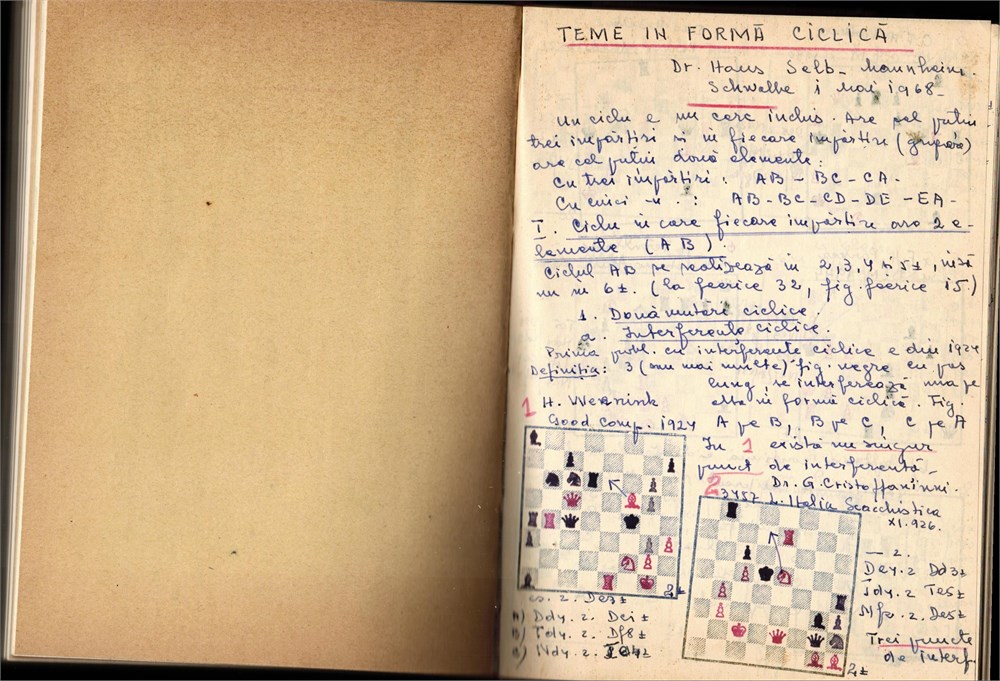 TEME IN FORMĂ CICLICĂ
Dr. Hans Selb - Mannheim.
Schwalbe i Mai 1968-
Un ciclu e un cerc inchis. Are cel puțin
trei impărtiri si in fiecare impărtire (grupare)
are cel puțin două elemente:
Cu trei impărtiri: AB - BC - CA -
Cu cinci -"- : AB - BC - CD - DE - EA -
I. Ciclu in care fiecare impărtire are 2 e-
lemente (AB).
Ciclul AB se realizează in 2, 3, 4 si 5±, insă
nu in 6±. (la feerice 32, fig. feerice 15)
1. Două mutări ciclice.
a. Interferențe ciclice.
Prima probl. cu interferențe ciclice e din 1924
Definiția: 3 (sau mai multe) fig. negre cu pas
lung, se interferează una pe
alta in formă ciclică. Fig.
A pe B, B pe C, C pe A
1 H. Weenink
Good comp. 1924
In 1 există un singur
punct de interferență-
2 Dr. G. Cristoffanini.
L'Italia Scacchistica
XI.926.
2±
— 2.
Dey. 2 Dd3±
Tdy. 2 Te5±
2. De5±
Trei puncte
de interf.
2. De3±
A) Ddy. 2. De1±
B) Tdy. 2. Df8±
C) Ndy. 2.
2±